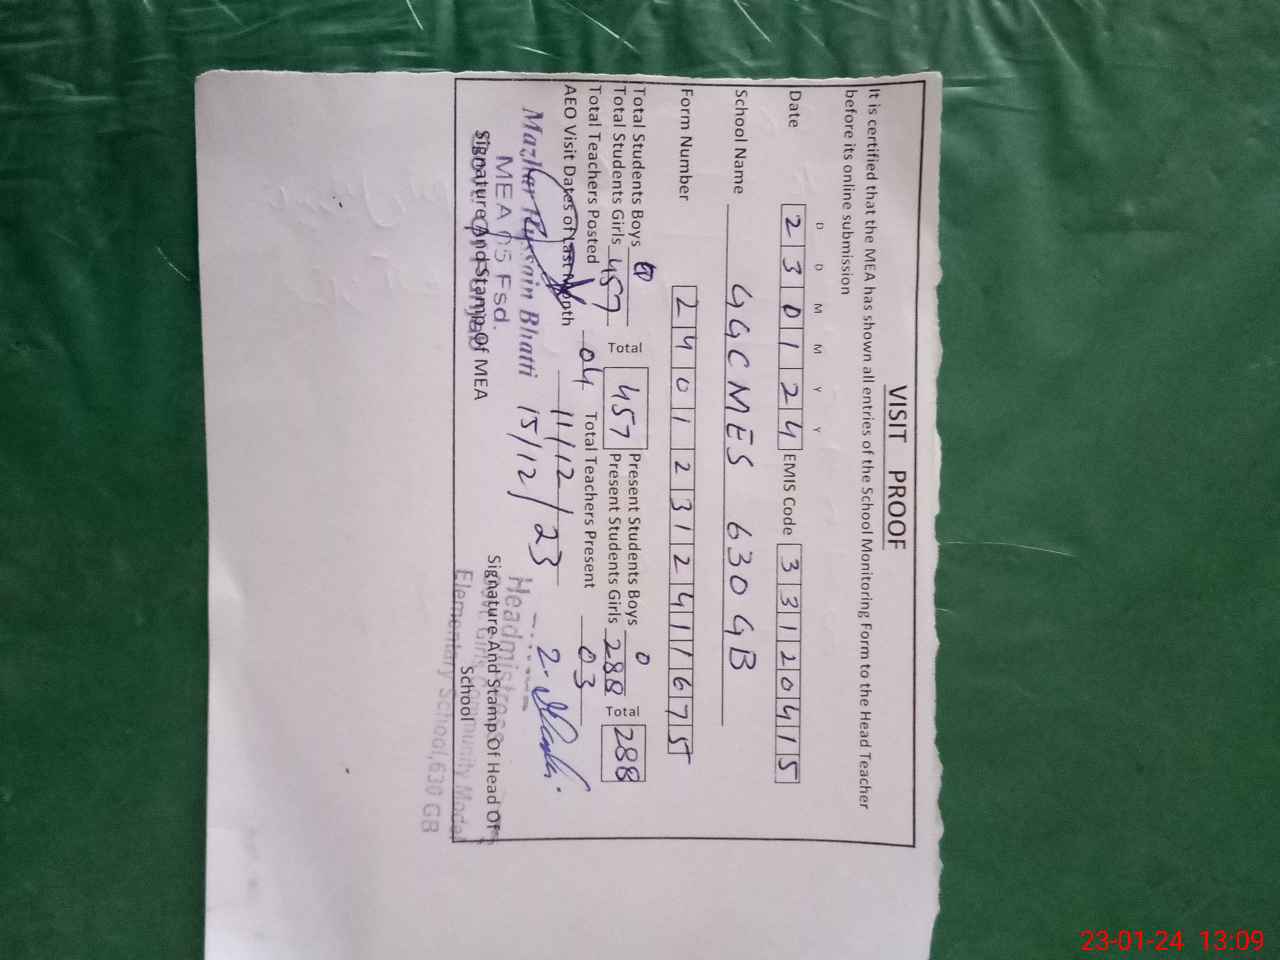 VISIT PROOF
It is certified that the MEA has shown all entries of the School Monitoring Form to the Head Teacher
before its online submission
D D M M Y Y
Date 230124 EMIS Code 33120415
School Name GGCMES 630 GB
Form Number 24012312411675
Total Students Boys 0 Present Students Boys 0
Total Students Girls 457 Total 457 Present Students Girls 288 Total 288
Total Teachers Posted 04 Total Teachers Present 03
AEO Visit Dates of Last Month 11/12/ 15/12/23
Mazhar Hussain Bhatti
MEA 05 Fsd.
Signature And Stamp Of MEA
Headmistress
Signature And Stamp Of Head Of
School
Govt. Girls Community Model
Elementary School, 630 GB
23-01-24 13:09